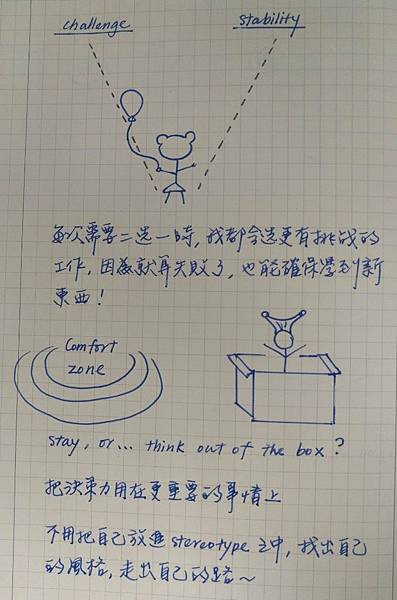 challenge
stability
每次需要二選一時, 我都會選更有挑战的
工作, 因為就算失敗了, 也能確保學到新
東西!
Comfort
zone
stay, or... think out of the box?
把決策力用在更重要的事情上
不用把自己放進 stereotype 之中, 找出自己
的風格, 走出自己的路~